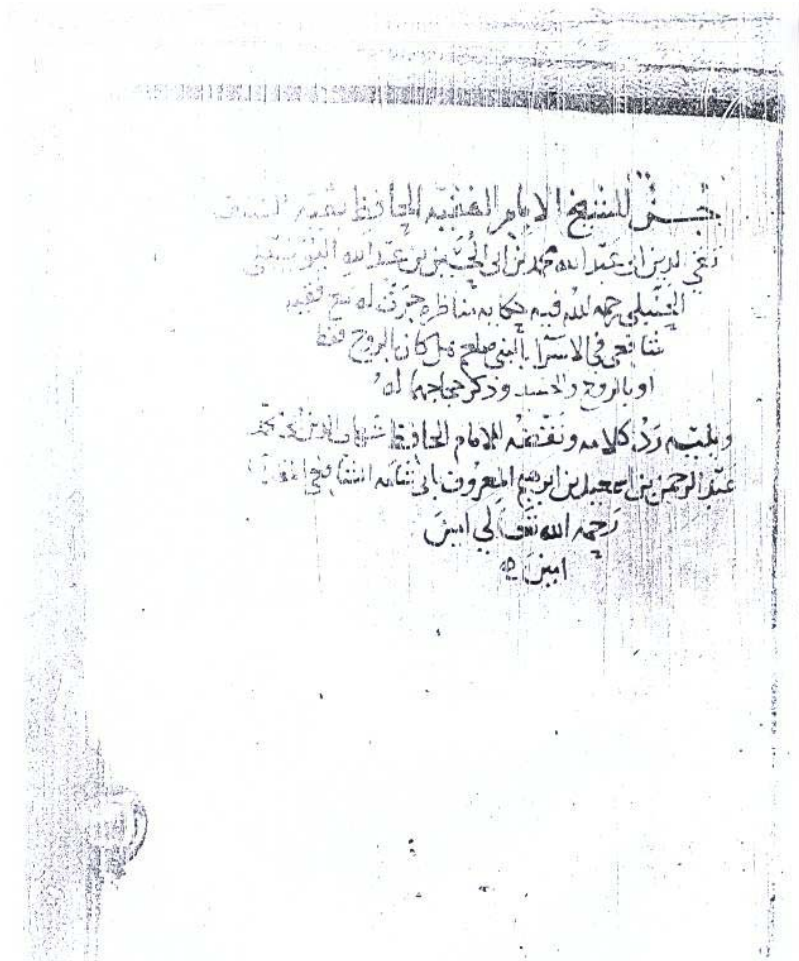 جزء للشيخ الامام الفقيه الحافظ بقية السلف
تقي الدين ابى عبد الله محمد بن ابى الحسين بن عبد الله اليونيني
الحنبلي رحمه الله فيه حكاية مناظره جرت له مع فقيه
شافعي في الاسرا بالنبي صلعم هل كان بالروح فقط
او بالروح والجسد وذكر حجاجهما له
ويليه رد كلامه ونقضه للامام الحافظ شهاب الدين محمد
عبد الرحمن بن اسمعيل بن ابرهيم المعروف بابى شامه الشافعي
رحمه الله تعالى امين
امين